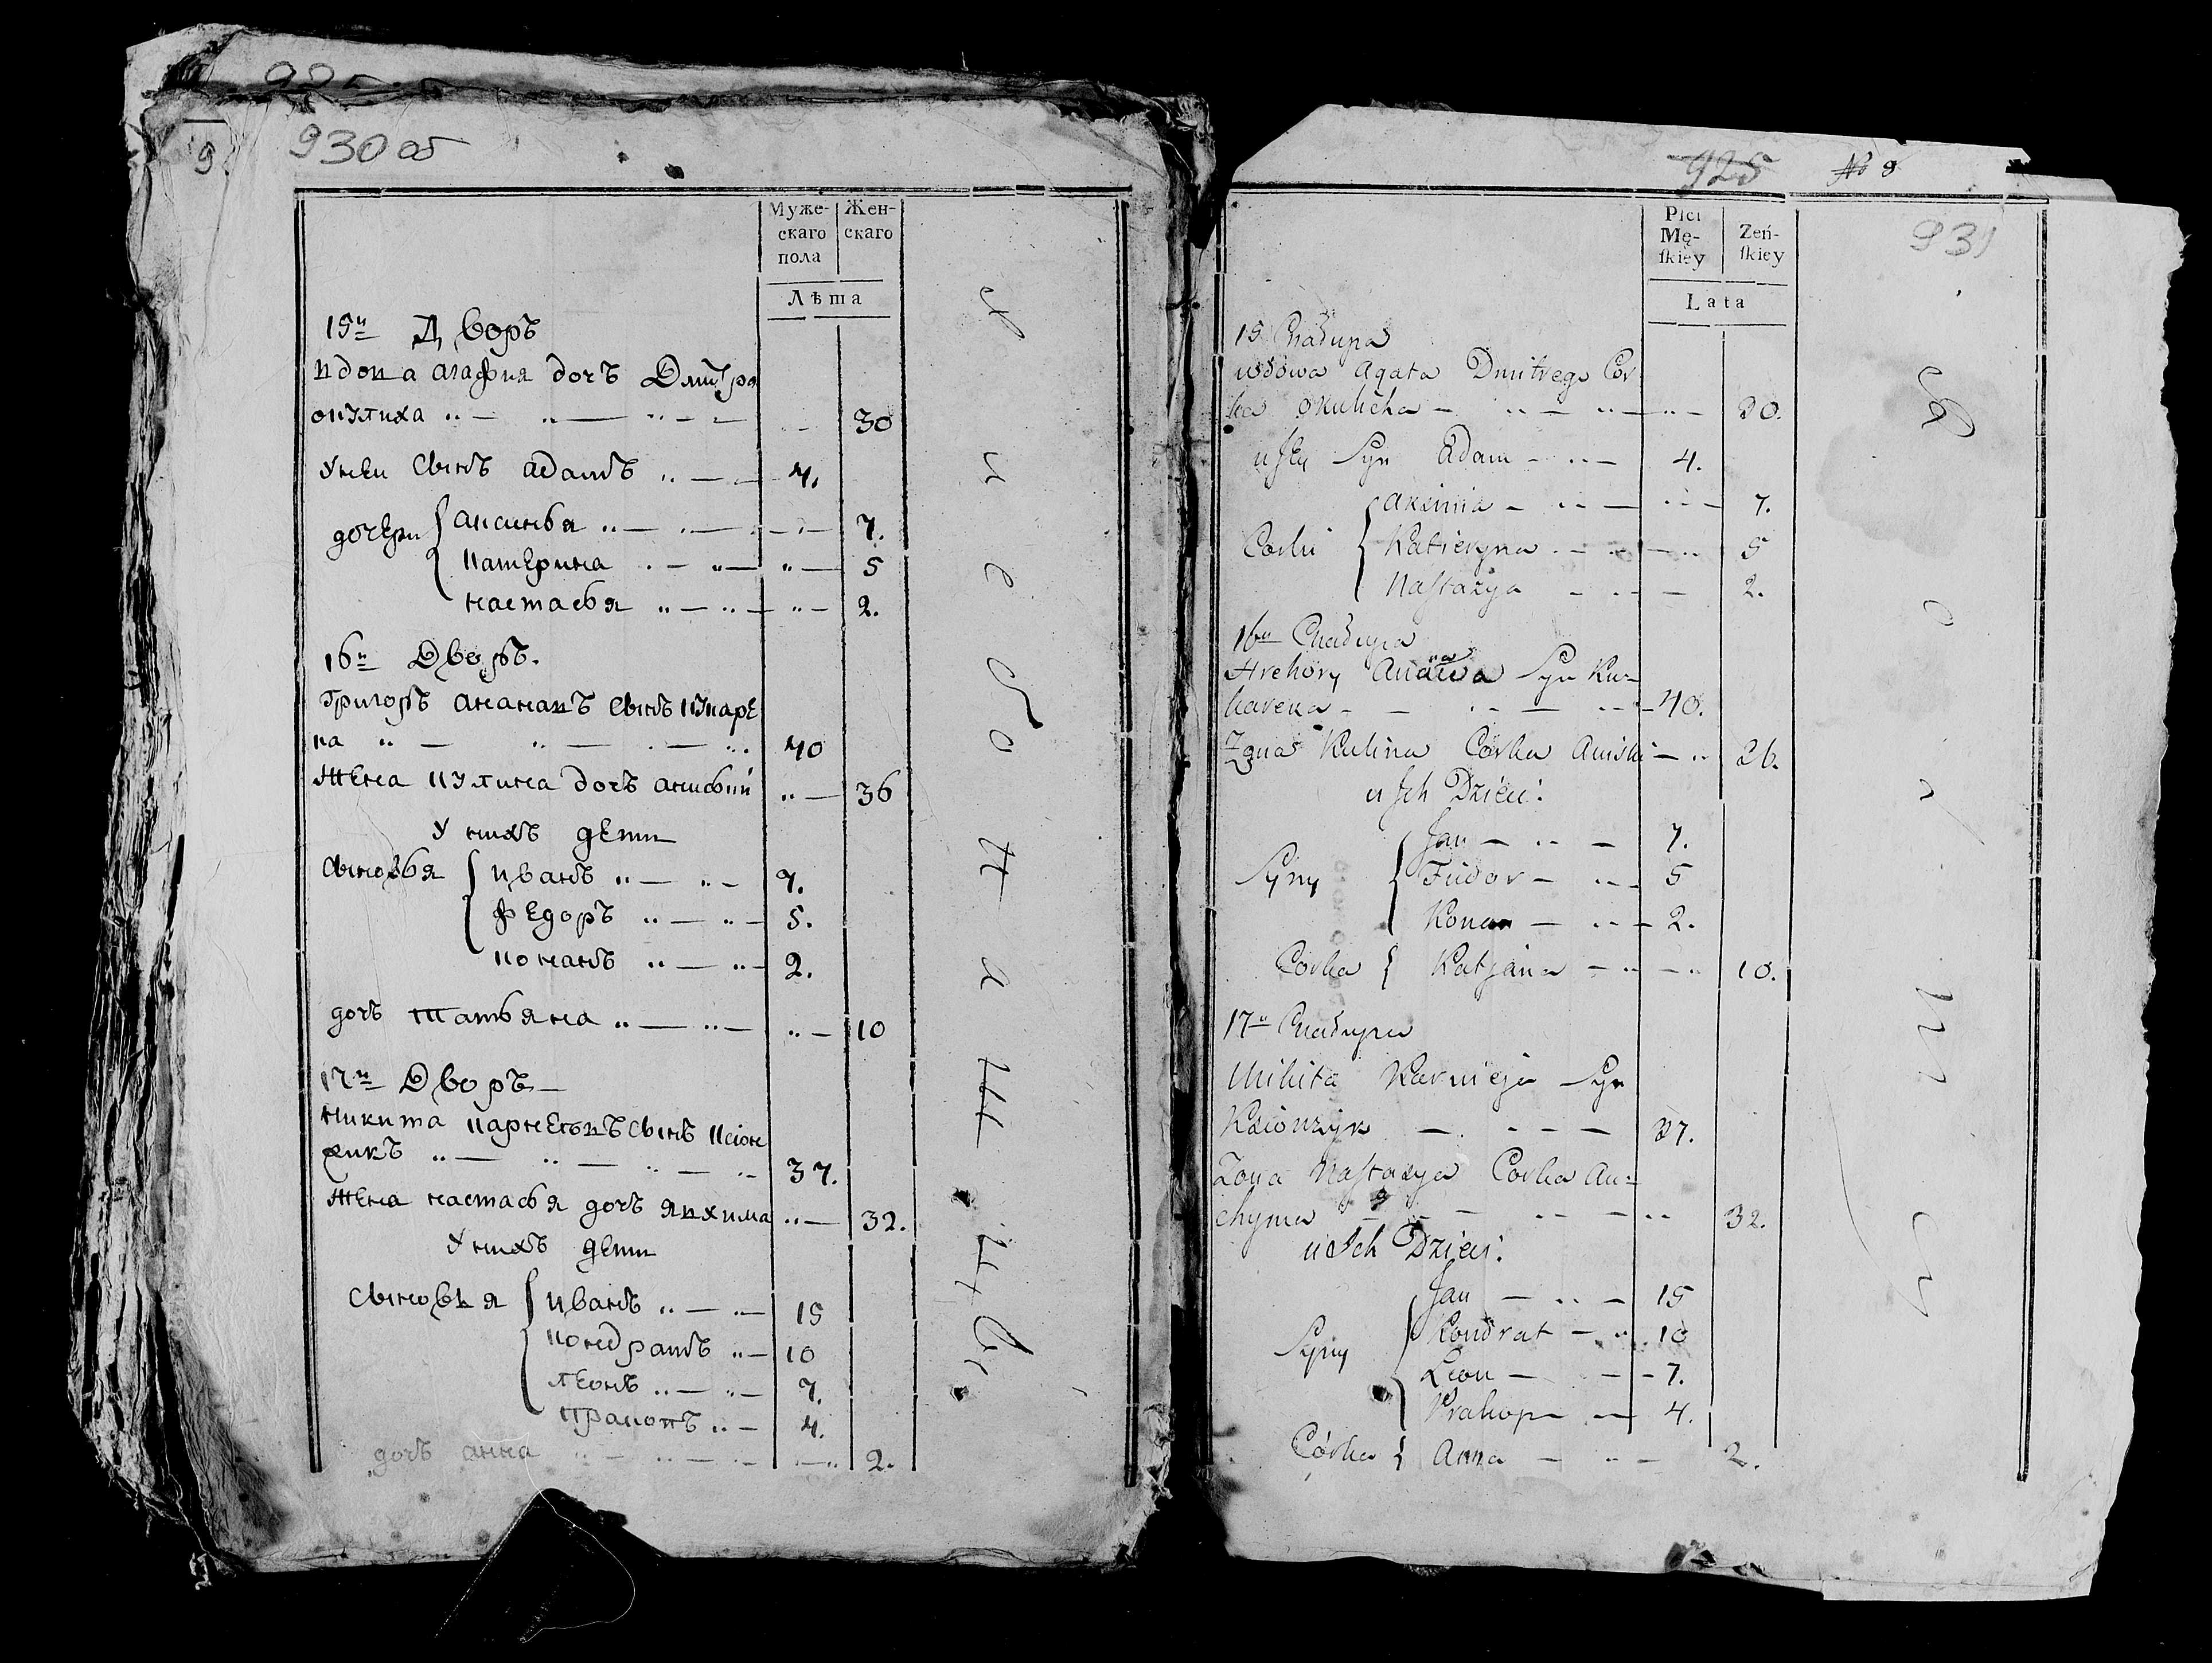 930 об
9.
Муже-
скаго
пола
Жен-
скаго
Лѣта
15й Дворъ
вдова агафия дочъ Дмитра
окулиха 30
Унеи сынъ адамъ 4.
дочери аксинья 7.
катерина 5
настасья 2.
16й Дворъ.
Григоръ ананавъ сынъ кухаре
ка 40
Жена кулина дочъ аниски 36
У нихъ дети
сыновья иванъ 7.
федоръ 5.
конанъ 2.
дочъ татьяна 10
17й Дворъ
никита карнеевъ сынъ ксіон
жикъ 37.
жена настасья дочъ явхима 32.
У нихъ дети
сыновья иванъ 15
кондратъ 10
леонъ 7.
пракопъ 4.
дочъ анна 2.
925 № 9
931
Płci
Mę-
skiey
Zeń-
skiey
Lata
15 Chałupa
wdowa Agata Dmitrego Cor
ka Okulicha 30.
u Jey Syn Adam 4.
Corki Axinnia 7.
Katieryna 5
Nastazya 2.
16ta Chałupa
Hrehory Anana Syn Ku=
harena 40.
Zona Kulina Corka Aniski 26.
u Jch Dzieci:
Syny Jan 7.
Fiudor 5
Konan 2.
Corka Katjana 10.
17ta Chałupa
Mikita Karnieja Syn
Ksionżyk 37.
Zona Nastazya Corka Au=
chyma 32.
u Jch Dzieci:
Syny Jan 15
Kondrat 10
Leon 7.
Prakop 4.
Córka Anna 2.